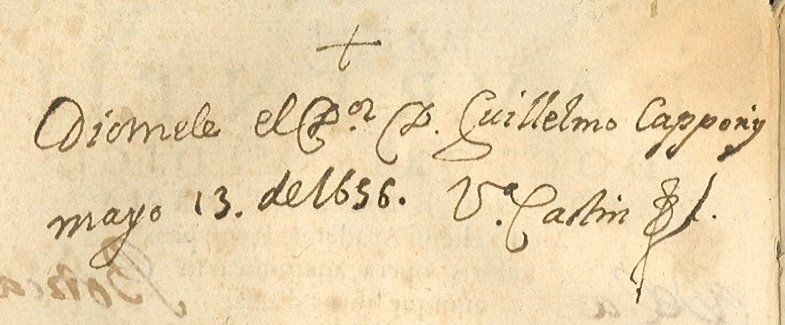 Diomele el D.or D. Guillelmo Cappony
mayo 13. de 1656. V.a Castin